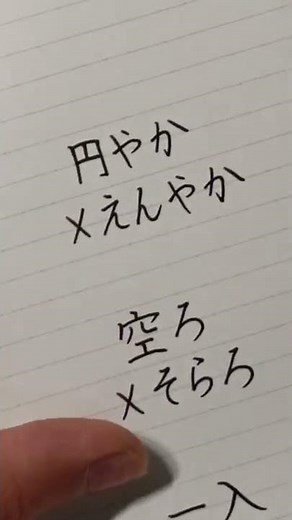 円やか
×えんやか
空ろ
×そらろ
一入